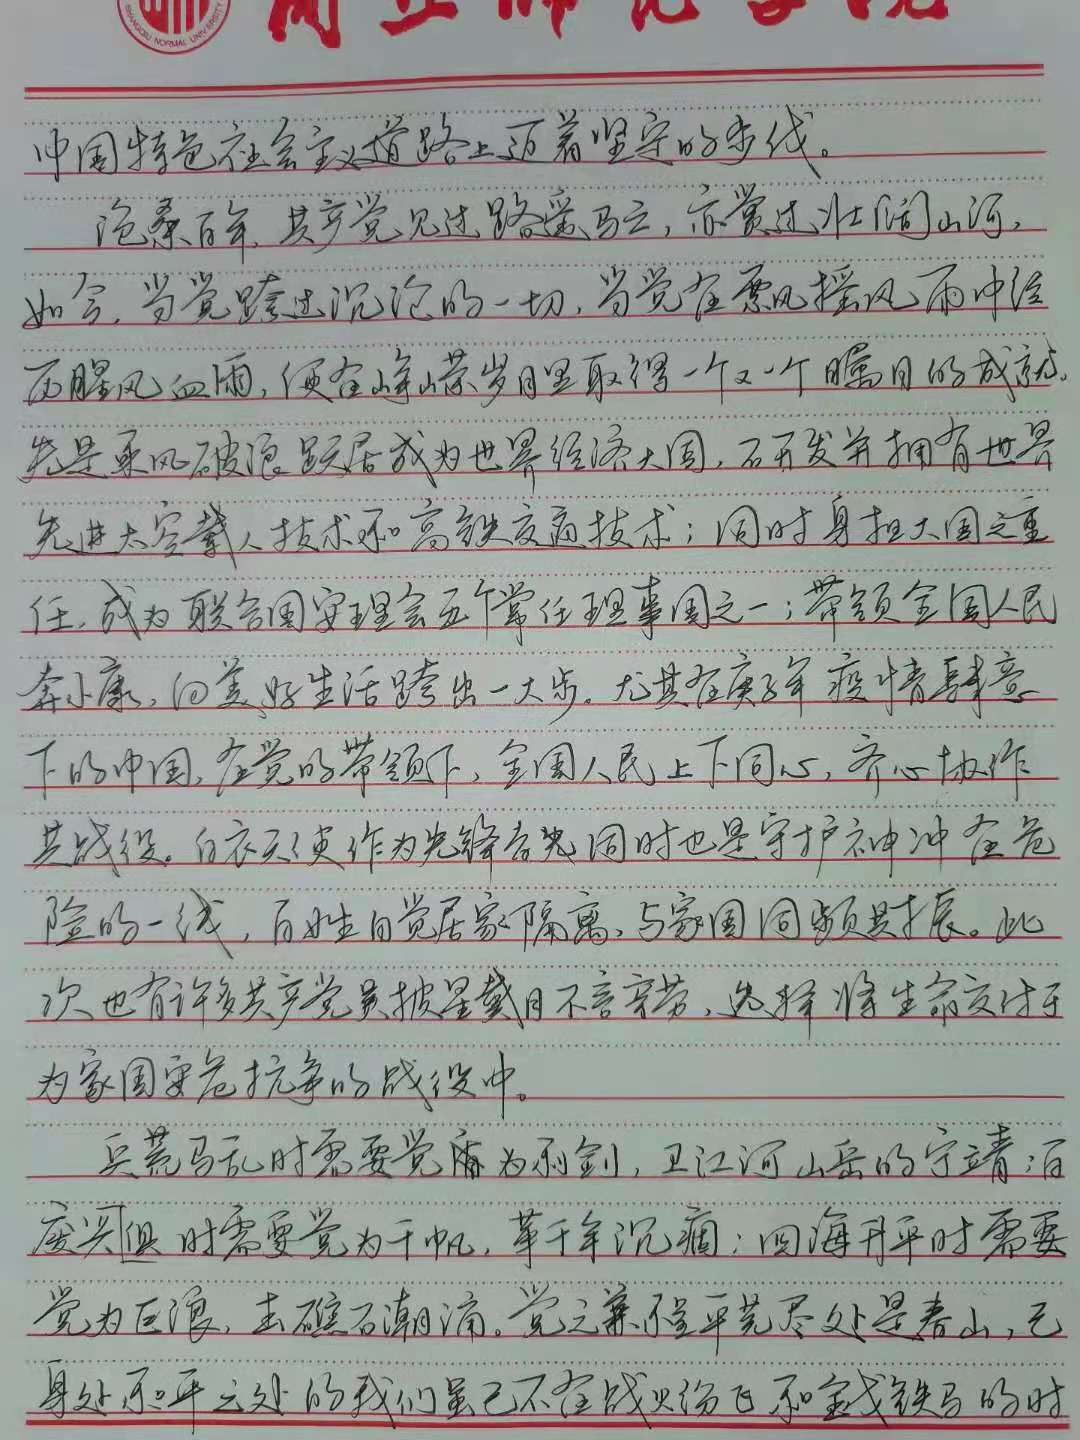 商丘师范学院
SHANGQIU NORMAL UNIVERSITY
中国特色社会主义道路上迈着坚定的步伐。
沧桑百年,共产党见过路遥马亡,亦赏过壮阔山河,
如今,当党跨过沉沦的一切,当党在票风摇风雨中经
历腥风血雨,便在峥嵘岁月里取得一个又一个瞩目的成就。
先是乘风破浪跃居成为世界经济大国,研发并拥有世界
先进太空载人技术和高铁交通技术;同时身担大国之重
任,成为联合国安理会五个常任理事国之一;带领全国人民
奔小康,向美好生活跨出一大步。尤其在庚子年疫情肆意
下的中国,在党的带领下,全国人民上下同心,齐心协作
共战役。白衣天使作为先锋者先同时也是守护神冲在危
险的一线,百姓自觉居家隔离,与家国同频共振。此
次也有许多共产党员披星戴月不言辛劳,选择将生命交付于
为家国安危抗争的战役中。
兵荒马乱时需要党为利剑,卫江河山岳的宁靖;百
废兴俱时需要党为千帆,革千年沉疴;四海升平时需要
党为巨浪,击礁石潮涌。党之兼程平芜尽处是春山,已
身处和平之处的我们虽已不在战火纷飞和金戈铁马的时